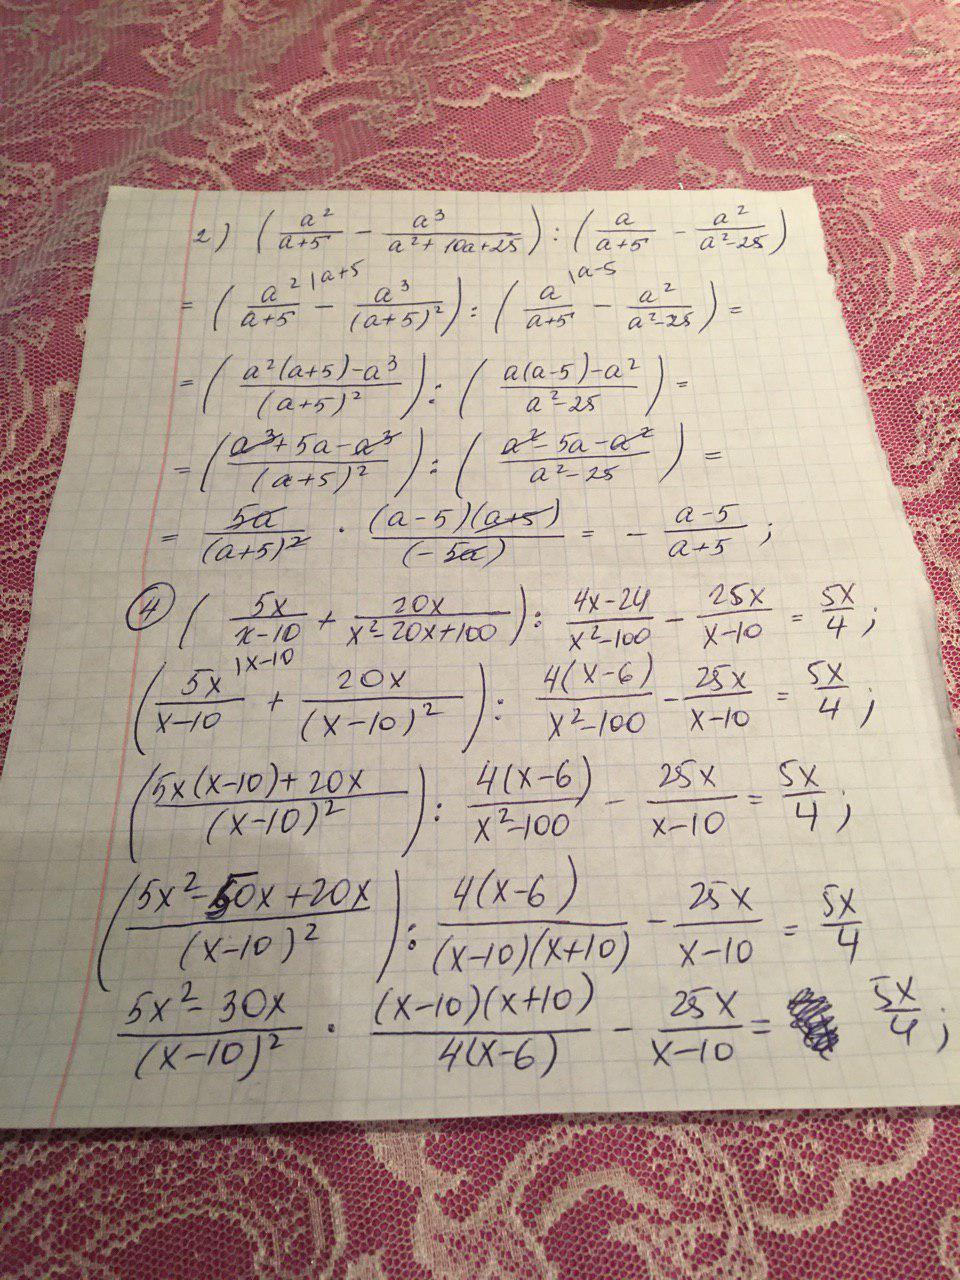 2) (a²/(a+5) - a³/(a²+10a+25)) : (a/(a+5) - a²/(a²-25))
= (a²/(a+5) |a+5 - a³/(a+5)²) : (a/(a+5) |a-5 - a²/(a²-25)) =
= ((a²(a+5)-a³)/(a+5)²) : ((a(a-5)-a²)/(a²-25)) =
= ((a³+5a-a³)/(a+5)²) : ((a²-5a-a²)/(a²-25)) =
= 5a/(a+5)² · (a-5)(a+5)/(-5a) = - (a-5)/(a+5) ;
4 (5x/(x-10) + 20x/(x²-20x+100)) : (4x-24)/(x²-100) - 25x/(x-10) = 5x/4 ;
(5x/(x-10) |x-10 + 20x/(x-10)²) : 4(x-6)/(x²-100) - 25x/(x-10) = 5x/4 ;
((5x(x-10)+20x)/(x-10)²) : 4(x-6)/(x²-100) - 25x/(x-10) = 5x/4 ;
((5x²-50x+20x)/(x-10)²) : 4(x-6)/((x-10)(x+10)) - 25x/(x-10) = 5x/4
(5x²-30x)/(x-10)² · (x-10)(x+10)/(4(x-6)) - 25x/(x-10) = 5x/4 ;